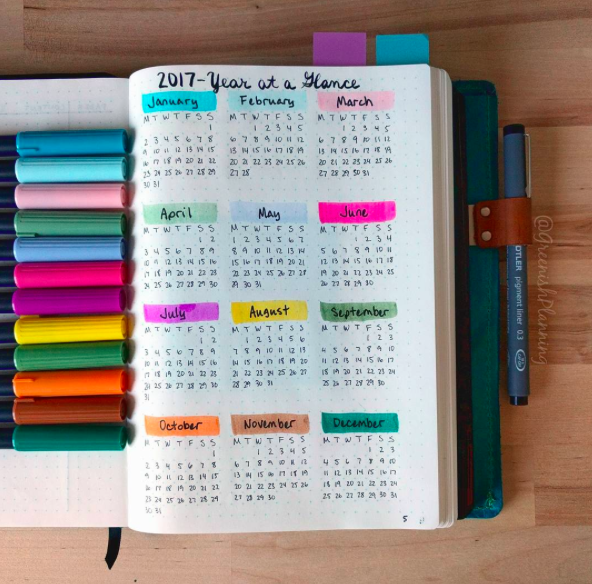 2017-Year at a Glance
January
M T W T F S S
2 3 4 5 6 7 8
9 10 11 12 13 14 15
16 17 18 19 20 21 22
23 24 25 26 27 28 29
30 31
February
M T W T F S S
1 2 3 4 5
6 7 8 9 10 11 12
13 14 15 16 17 18 19
20 21 22 23 24 25 26
27 28
March
M T W T F S S
1 2 3 4 5
6 7 8 9 10 11 12
13 14 15 16 17 18 19
20 21 22 23 24 25 26
27 28 29 30 31
April
M T W T F S S
1 2
3 4 5 6 7 8 9
10 11 12 13 14 15 16
17 18 19 20 21 22 23
24 25 26 27 28 29 30
May
M T W T F S S
1 2 3 4 5 6 7
8 9 10 11 12 13 14
15 16 17 18 19 20 21
22 23 24 25 26 27 28
29 30 31
June
M T W T F S S
1 2 3 4
5 6 7 8 9 10 11
12 13 14 15 16 17 18
19 20 21 22 23 24 25
26 27 28 29 30
July
M T W T F S S
1 2
3 4 5 6 7 8 9
10 11 12 13 14 15 16
17 18 19 20 21 22 23
24 25 26 27 28 29 30
31
August
M T W T F S S
1 2 3 4 5 6
7 8 9 10 11 12 13
14 15 16 17 18 19 20
21 22 23 24 25 26 27
28 29 30 31
September
M T W T F S S
1 2 3
4 5 6 7 8 9 10
11 12 13 14 15 16 17
18 19 20 21 22 23 24
25 26 27 28 29 30
October
M T W T F S S
1
2 3 4 5 6 7 8
9 10 11 12 13 14 15
16 17 18 19 20 21 22
23 24 25 26 27 28 29
30 31
November
M T W T F S S
1 2 3 4 5
6 7 8 9 10 11 12
13 14 15 16 17 18 19
20 21 22 23 24 25 26
27 28 29 30
December
M T W T F S S
1 2 3
4 5 6 7 8 9 10
11 12 13 14 15 16 17
18 19 20 21 22 23 24
25 26 27 28 29 30 31
5
pigment liner 0.3